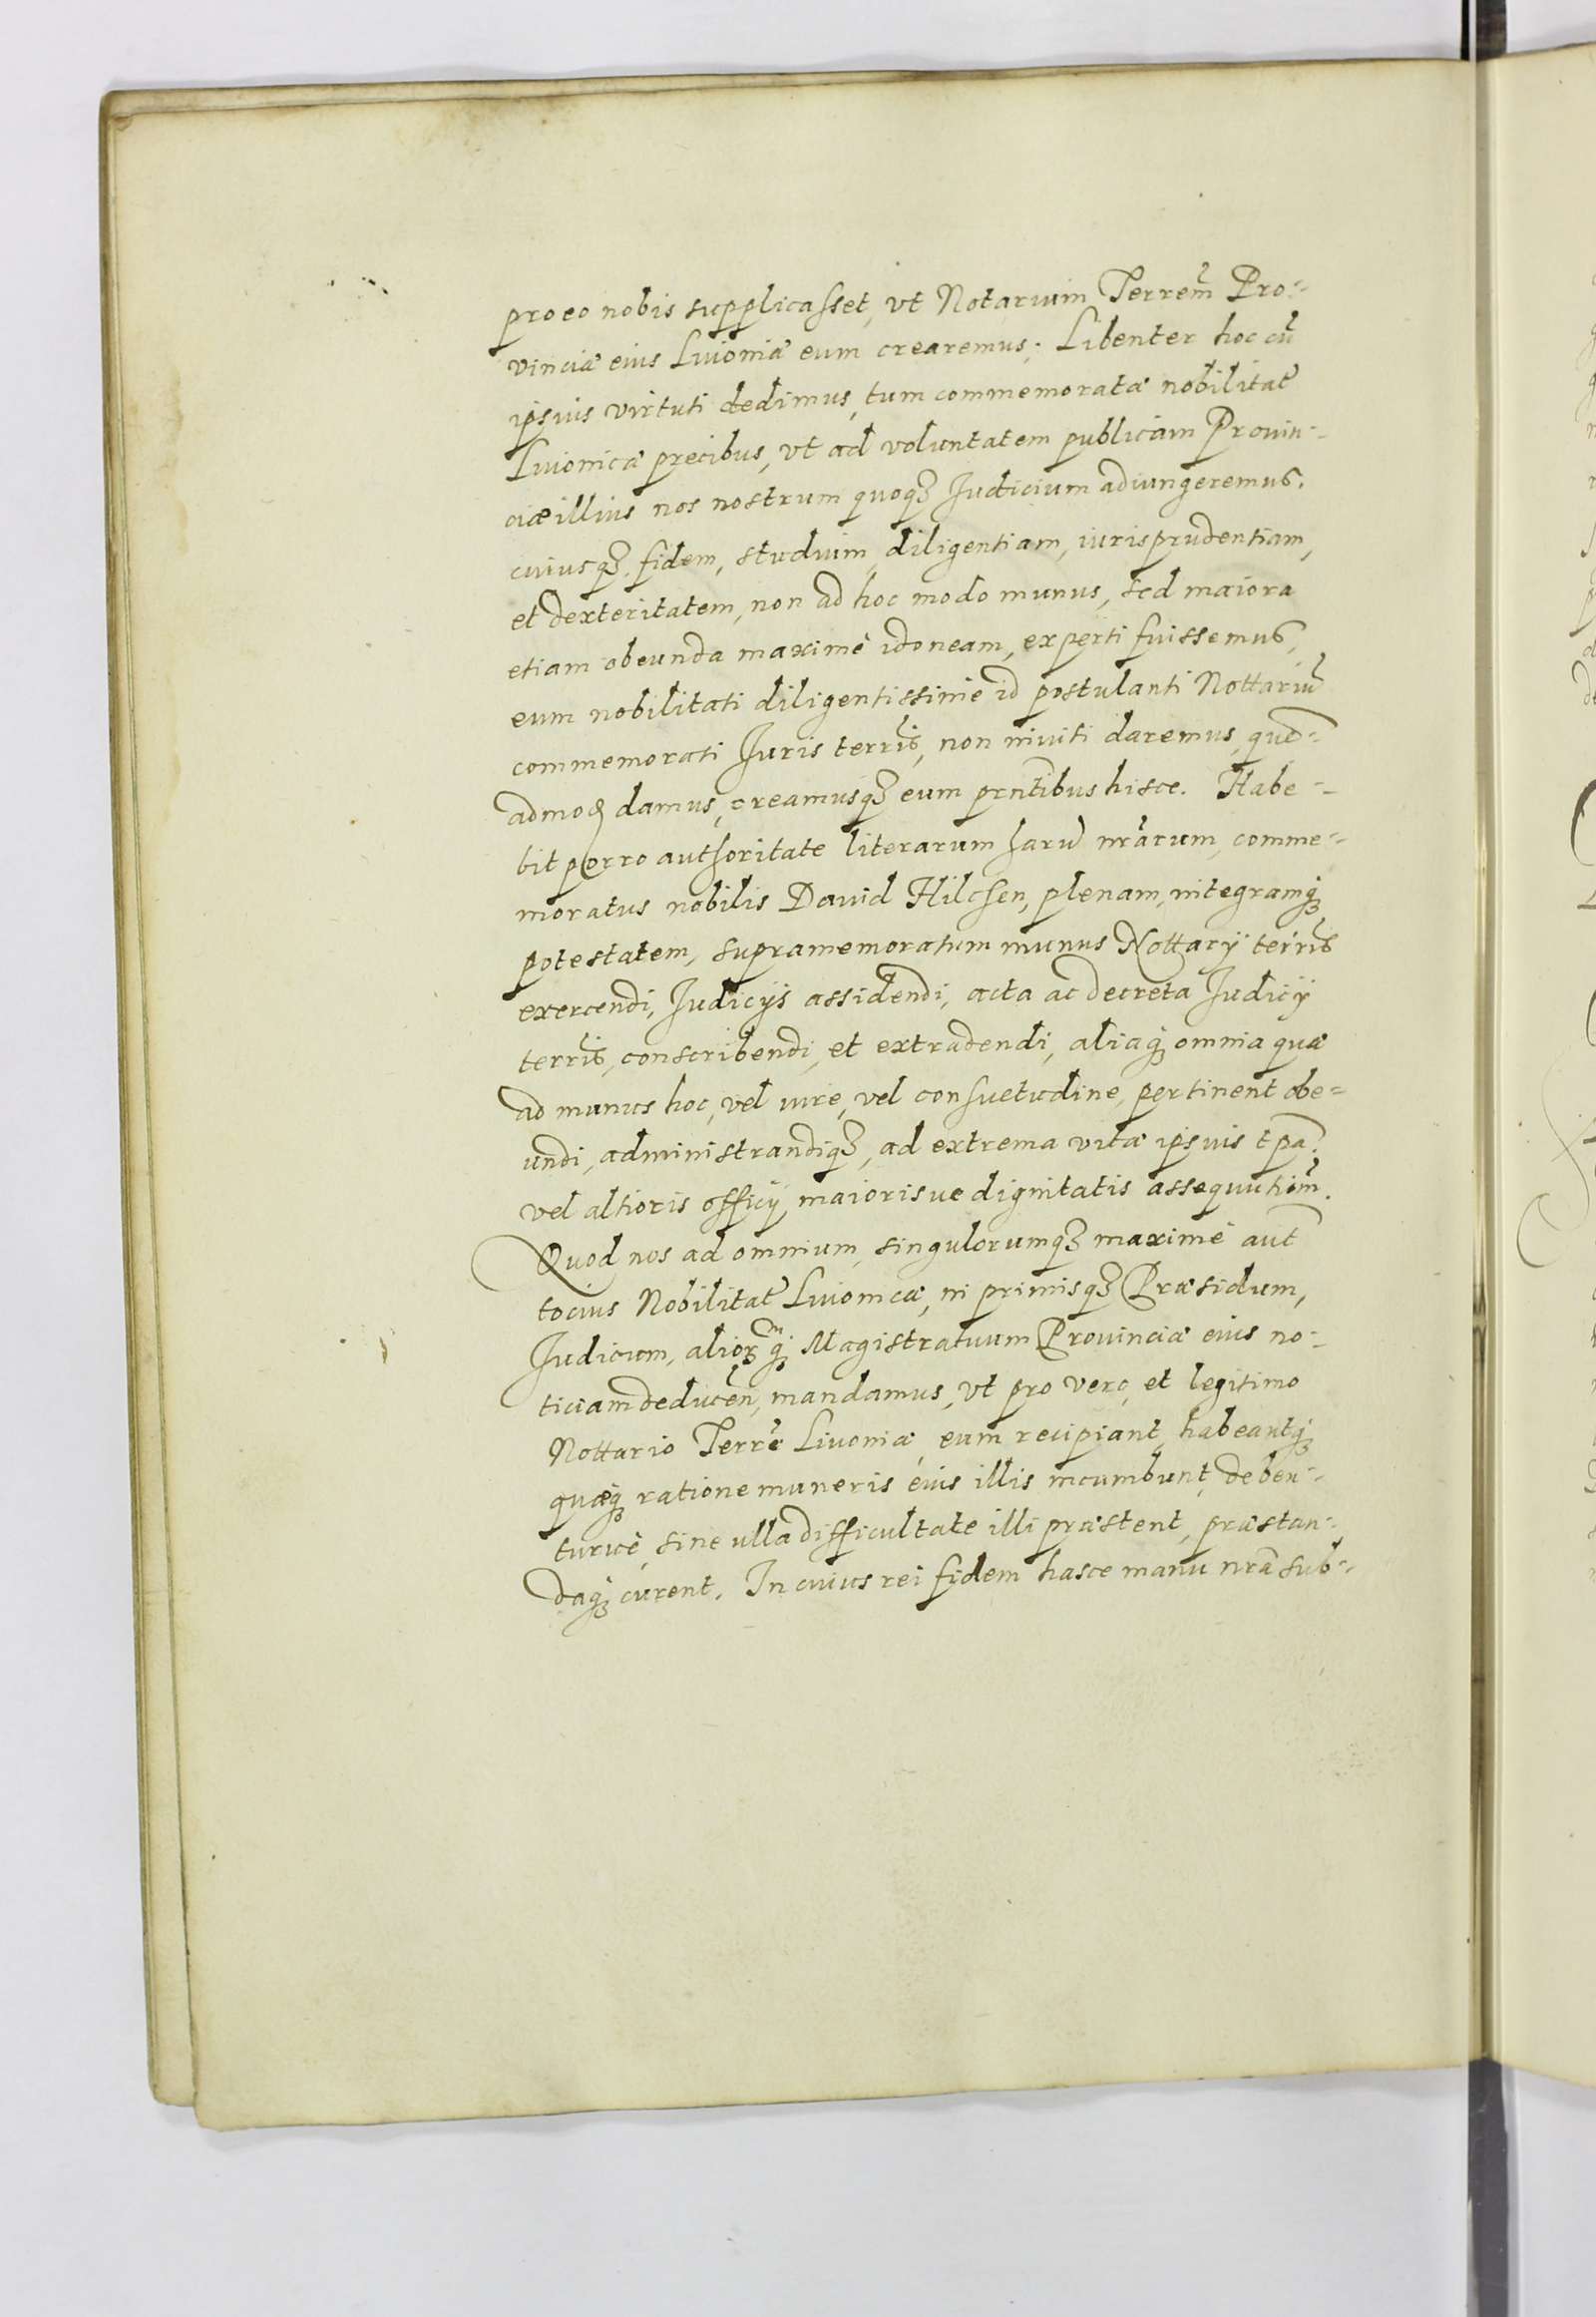 pro eo nobis supplicasset, vt Notarium Terrem̃ Pro-
vinciæ eius Liuoniæ eum crearemus. Libenter hoc cũ
ipsius virtuti dedimus, tum commemoratæ nobilitat̃
Liuonicæ precibus, vt ad voluntatem publicam Prouin-
ciæ illius nos nostrum quoqꝫ Iudicium adiungeremus.
cuiusqꝫ fidem, studium diligentiam, iurisprudentiam,
et dexteritatem, non ad hoc modo munus, sed maiora
etiam obeunda maximè idoneam, experti fuissemus,
eum nobilitati diligentissimè id postulanti Nottariũ
commemorati Iuris terrĩs, non inuiti daremus, quẽ-
admoꝺ damus, creamusqꝫ eum prñtibus hisce. Habe-
bit porro authoritate literarum harũ nr̃arum, comme-
moratus nobilis Dauid Hilchen, plenam, integramqꝫ
potestatem, supramemoratum munus Nottarÿ terrĩs
exercendi, Iudicÿs assidendi, acta ac decreta Iudicÿ
terrĩs, conscribendi, et extradendi, aliaqꝫ omnia quæ
ad munus hoc, vel iure, vel consuetudine, pertinent obe-
undi, administrandiqꝫ, ad extrema vitæ ipsius tp̃a.
vel altioris officÿ maiorisue dignitatis assequutiom̃.
Quod nos ad omnium, singulorumqꝫ maximè aut̃
tocius Nobilitat̃ Liuonicæ, in primisqꝫ Præsidum,
Iudicum, alioꝝqꝫ Magistratuum Prouinciæ eius no-
ticiam deducen̄, mandamus, vt pro vero, et legitimo
Nottario Terrẽ Liuoniæ eum recipiant, habeantqꝫ
quæqꝫ ratione muneris eius illis incumbunt, deben-
turuè, sine ulla difficultate illi præstent, præstan-
daqꝫ curent. In cuius rei fidem hasce manu nr̃a sub-